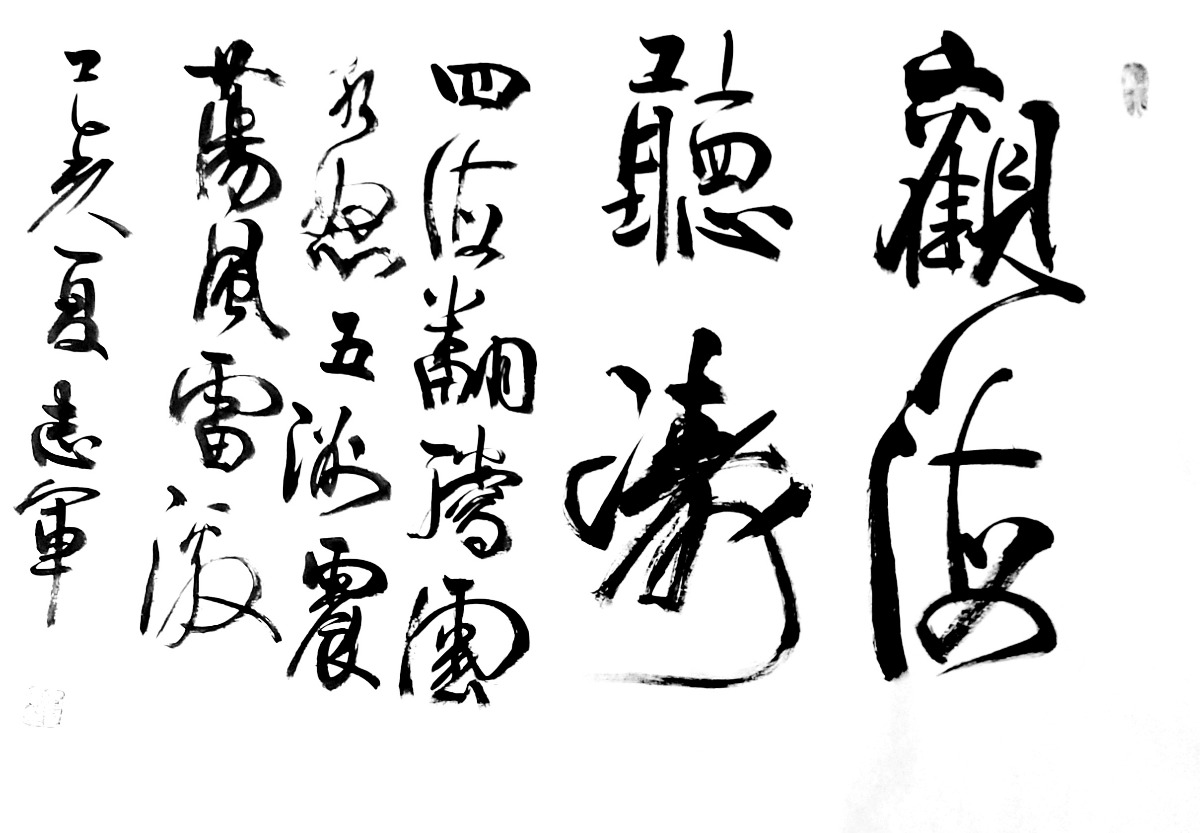 觀海
聽濤
四海翻騰雲
水怒五洲震
蕩風雷激
己亥夏志軍